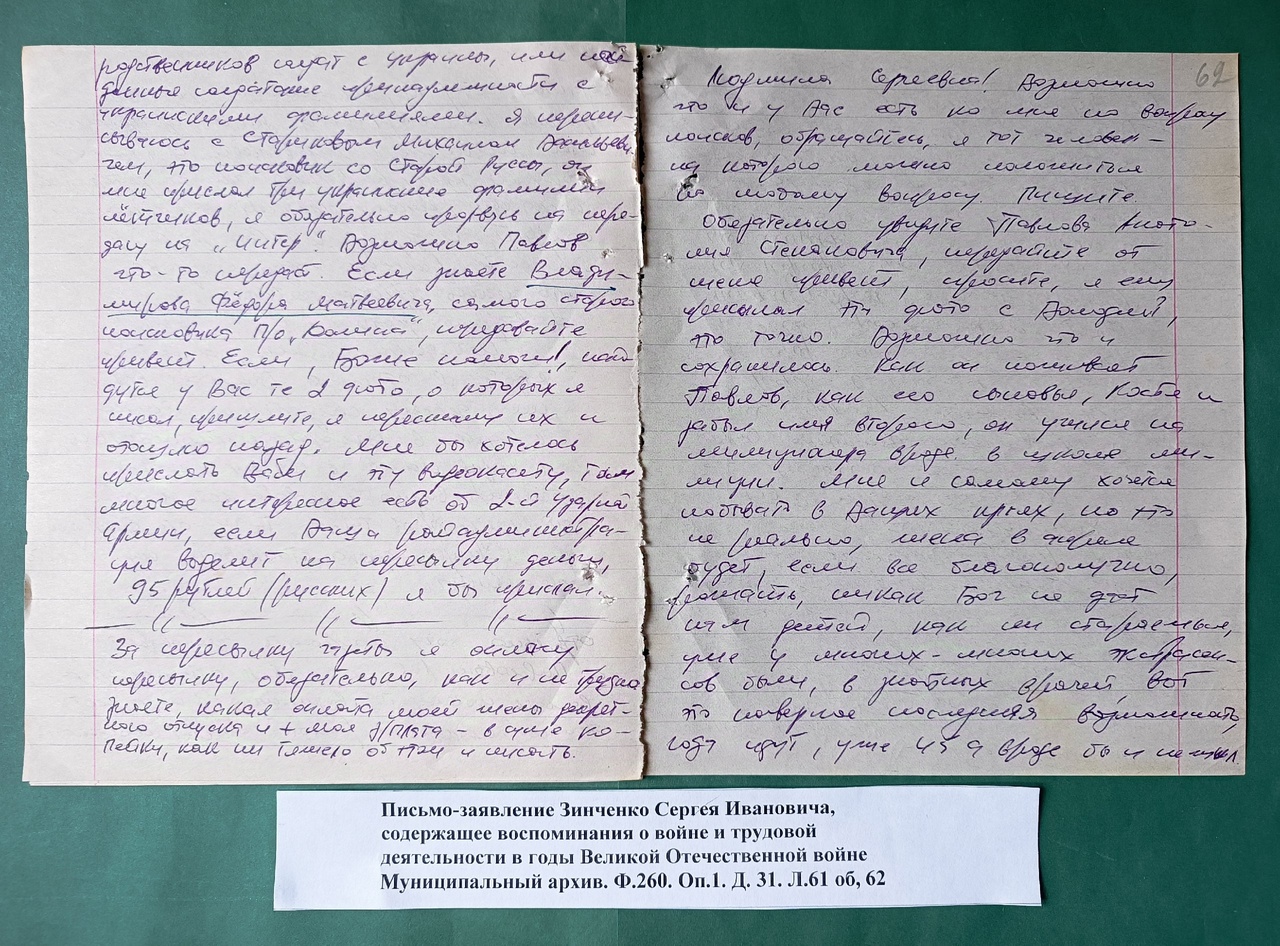 родственников солдат с Украины, или
данные солдатские принадлежности с
украинскими фамилиями. Я перепи-
сываюсь с Стариковым Михаилом Васильеви-
чем, это поисковик со Старой Руссы, он
мне прислал три украинские фамилии
лётчиков, я обязательно прорвусь на пере-
дачу на „Интер“ Возможно Павлов
что-то передаст. Если знаете Влади-
мирова Фёдора Матвеевича, самого старого
поисковика П/о „Долина“, передавайте
привет. Если, Боже помоги!, най-
дутся у Вас те 2 фото, о которых я
писал, пришлите, я пересниму их и
отошлю назад. Мне бы хотелось
прислать Вам и эту видеокасету, там
многое интересное есть об 2-й ударной
армии, если Ваша райадминистра-
ция выделит на пересылку деньги,
95 рублей (русских) я бы прислал.
За пересылку я оплачу
пересылку, обязательно, как и не трудно
знаете, какая оплата моей жены декрет-
ного отпуска и + моя з/плата - в сумме ко-
пейки, как ни тяжело об этом и писать.
62
Людмила Сергеевна! Возможно
что и у Вас есть ко мне по вопросу
поисков, обращайтесь, я тот человек -
на которого можно положиться
по любому вопросу. Пишите.
Обязательно увидите Павлова Анато-
лия Степановича, передайте от
меня привет, спросите, я ему
присылал эти фото с Володей?,
это точно. Возможно что и
сохранилось. Как он поживает
Павлов, как его сыновья, Костя и
забыл имя второго, он учился на
милиционера вроде в школе ми-
лиции. Мне и самому хочется
побывать в Ваших краях, но это
не реально, жена в апреле
будет, если всё благополучно,
рожать, никак Бог не даёт
нам детей, как ни стараемся,
уже у многих-многих экстрасен-
сов были, в знатных врачей, вот
это наверное последняя возможность,
годы идут, уже 45 а вроде бы и не жил.
Письмо-заявление Зинченко Сергея Ивановича,
содержащее воспоминания о войне и трудовой
деятельности в годы Великой Отечественной войне
Муниципальный архив. Ф.260. Оп.1. Д. 31. Л.61 об, 62